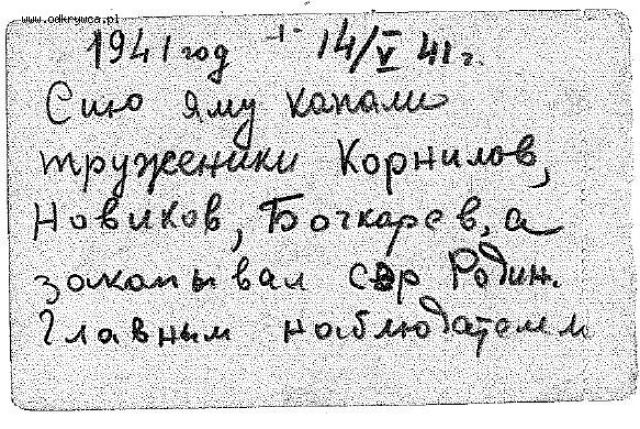 www.odkrywca.pl
1941 год -1- 14/V 41 г.
Сию яму копали
труженики Корнилов,
Новиков, Бочкарев, а
закапывал сер Родин.
Главным наблюдателем